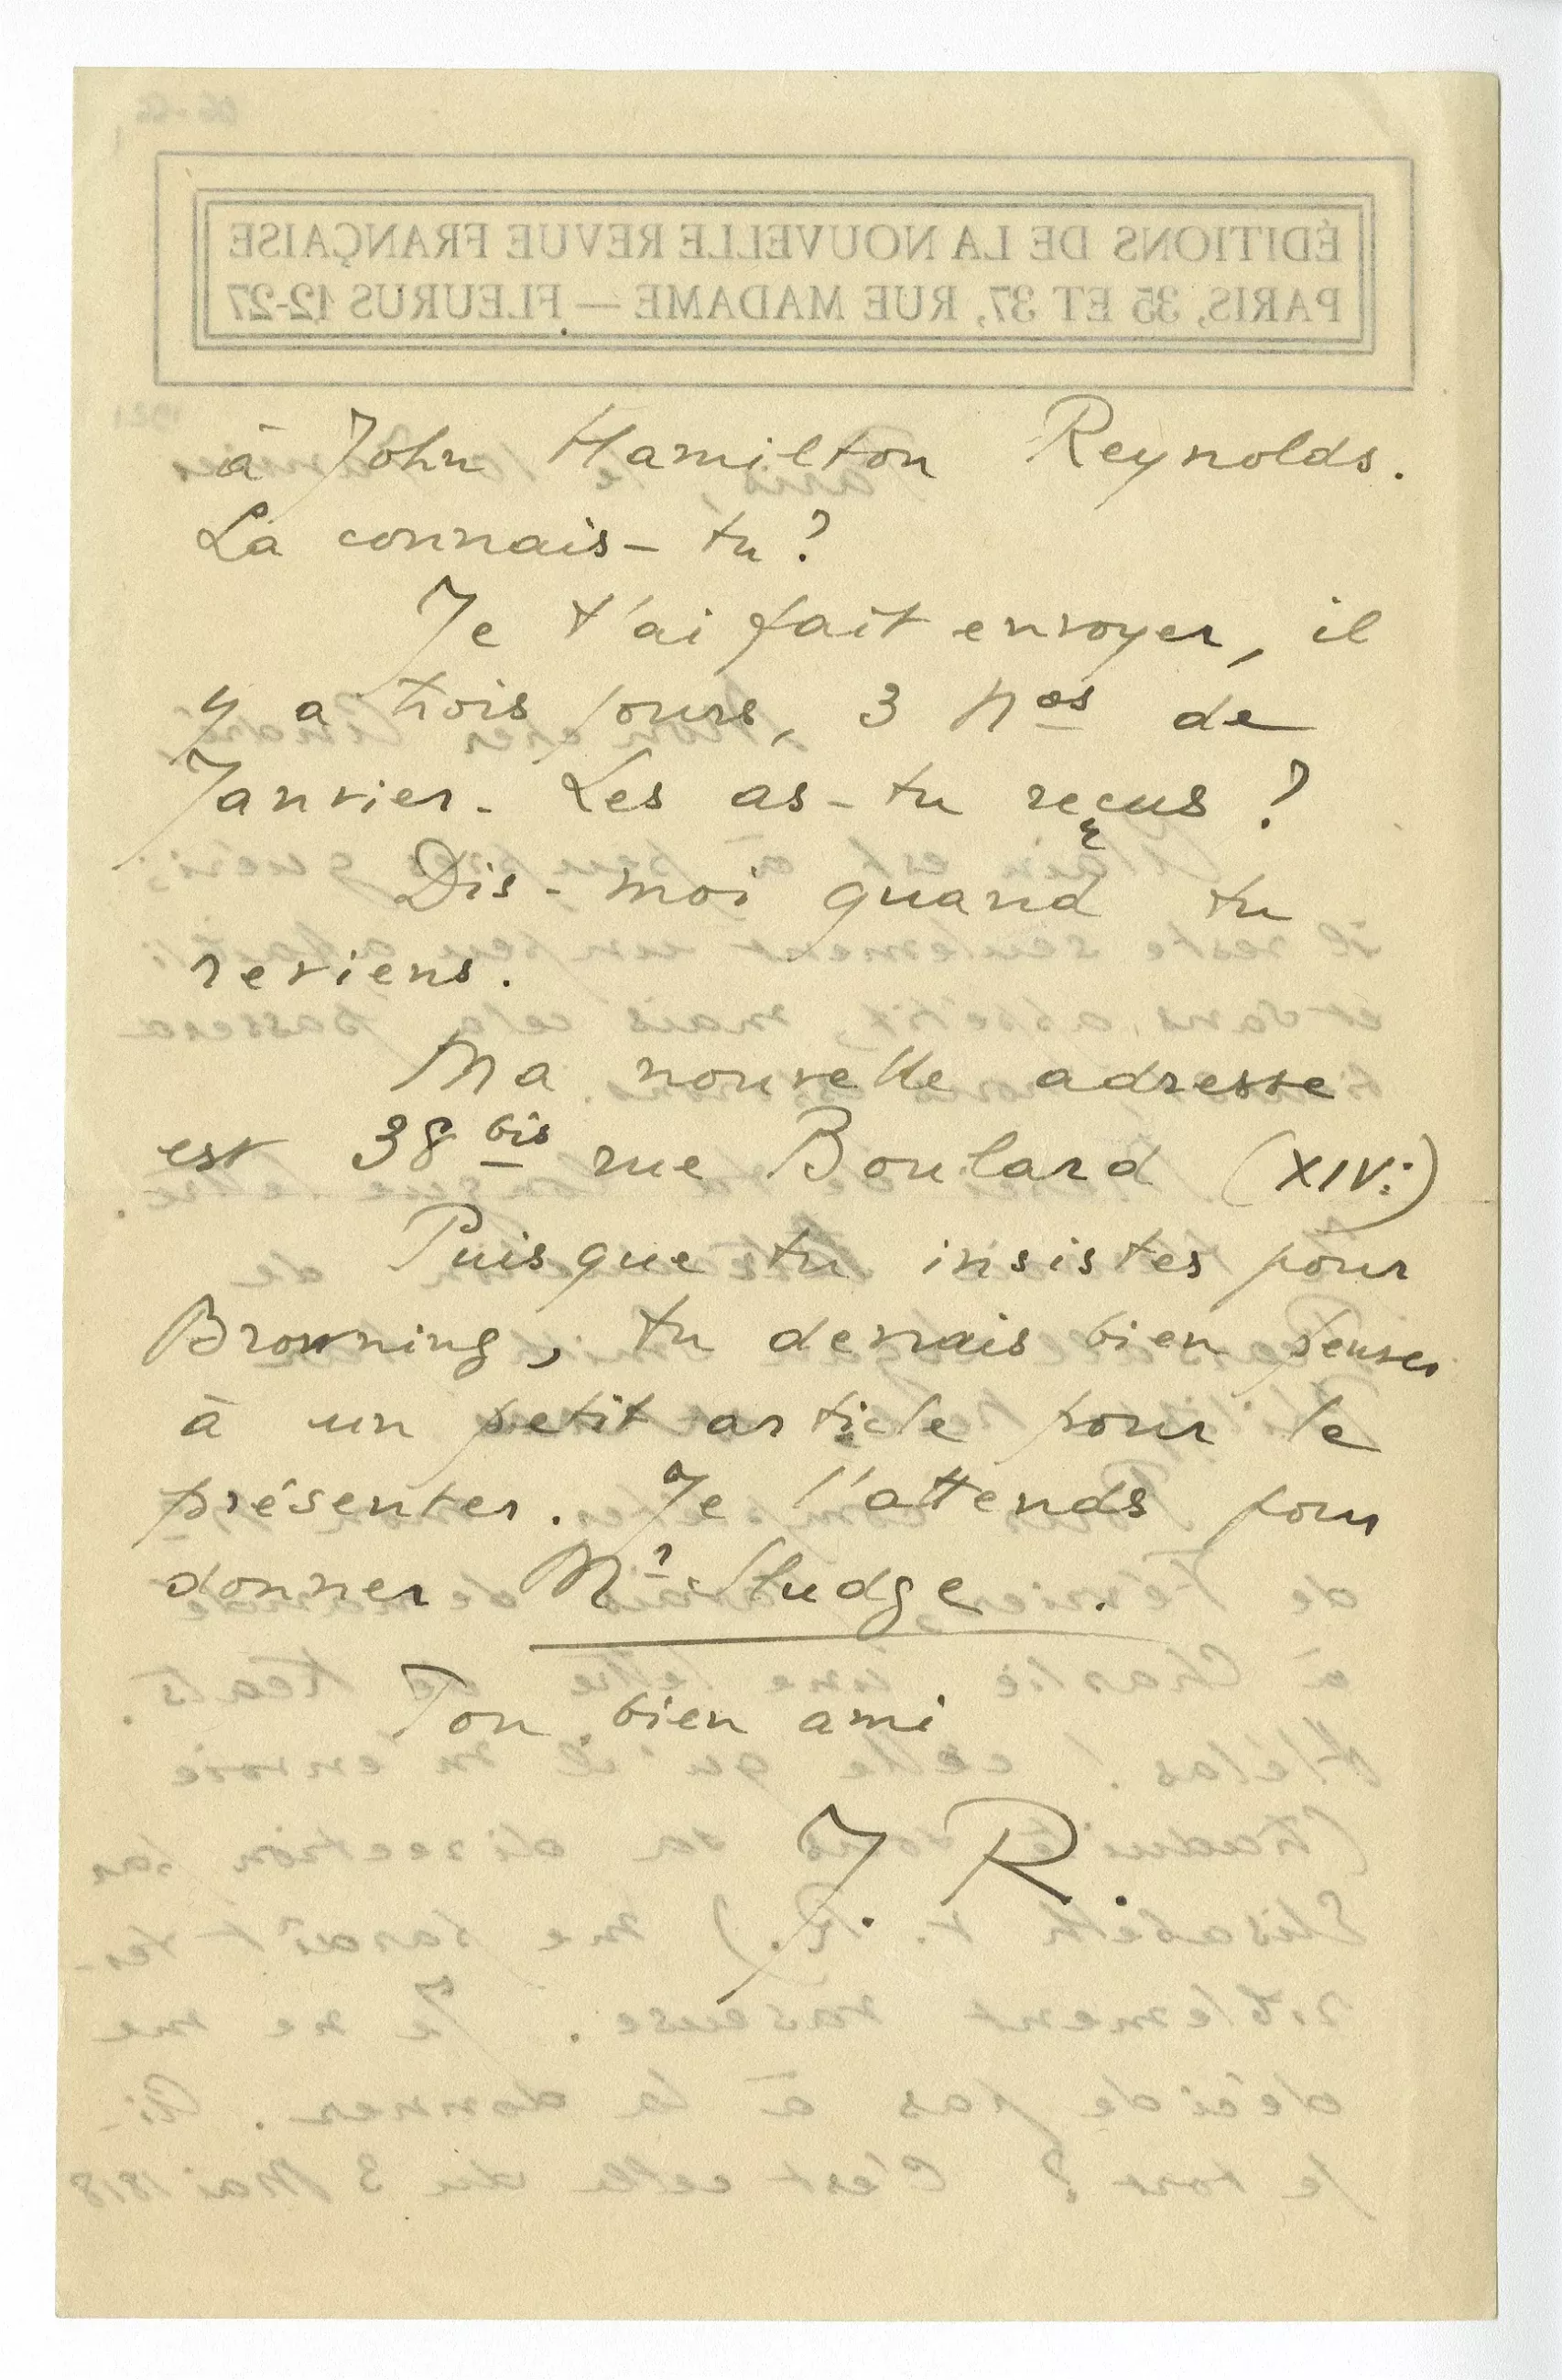 à John Hamilton Reynolds.
La connais-tu?
Je t'ai fait envoyer, il
y a trois jours, 3 nos de
Janvier. Les as-tu reçus ?
Dis-moi quand tu
reviens.
Ma nouvelle adresse
est 38 bis rue Boulard (XIVe)
Puisque tu insistes pour
Browning, tu devrais bien penser
à un petit article pour le
présenter. Je l'attends pour
donner Mr Sludge.
Ton bien ami
J. R.